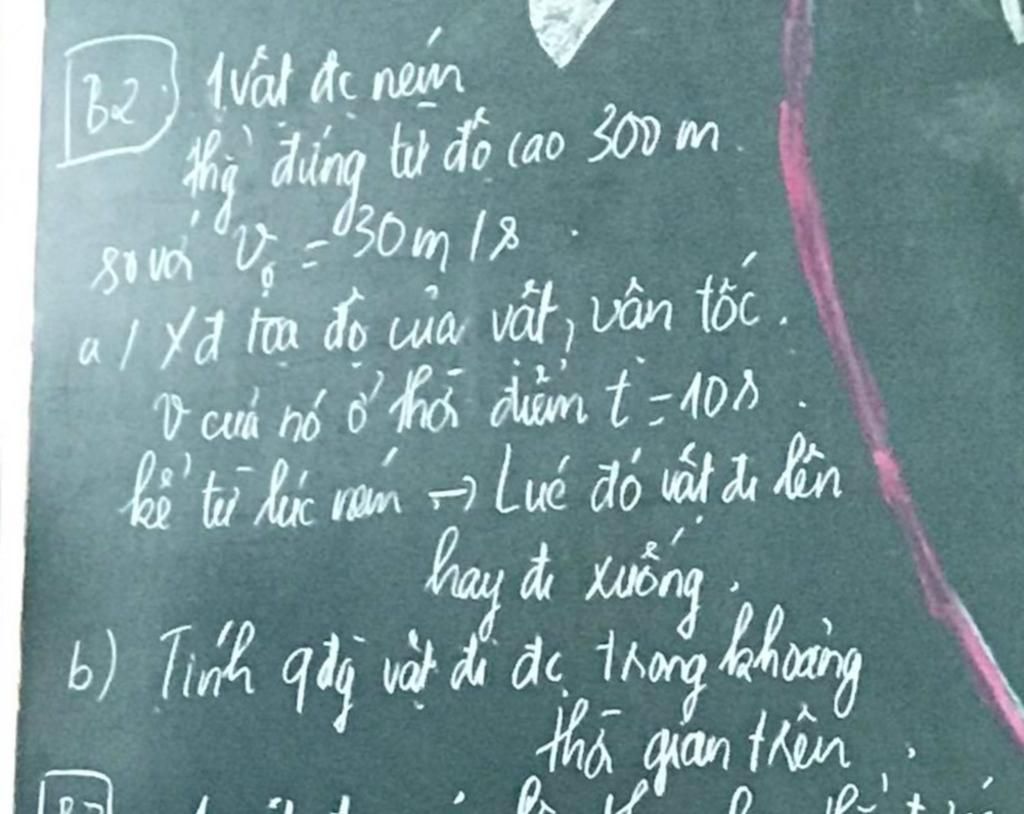 B2 1 vật đc ném
thg̉ đứng từ độ cao 300 m.
so với v₀ = 30 m/s.
a/ Xđ tọa độ của vật, vận tốc.
v của nó ở thời điểm t = 10s.
kể từ lúc ném → Lúc đó vật đi lên
hay đi xuống.
b) Tính qđg vật đi đc trong khoảng
thời gian trên.